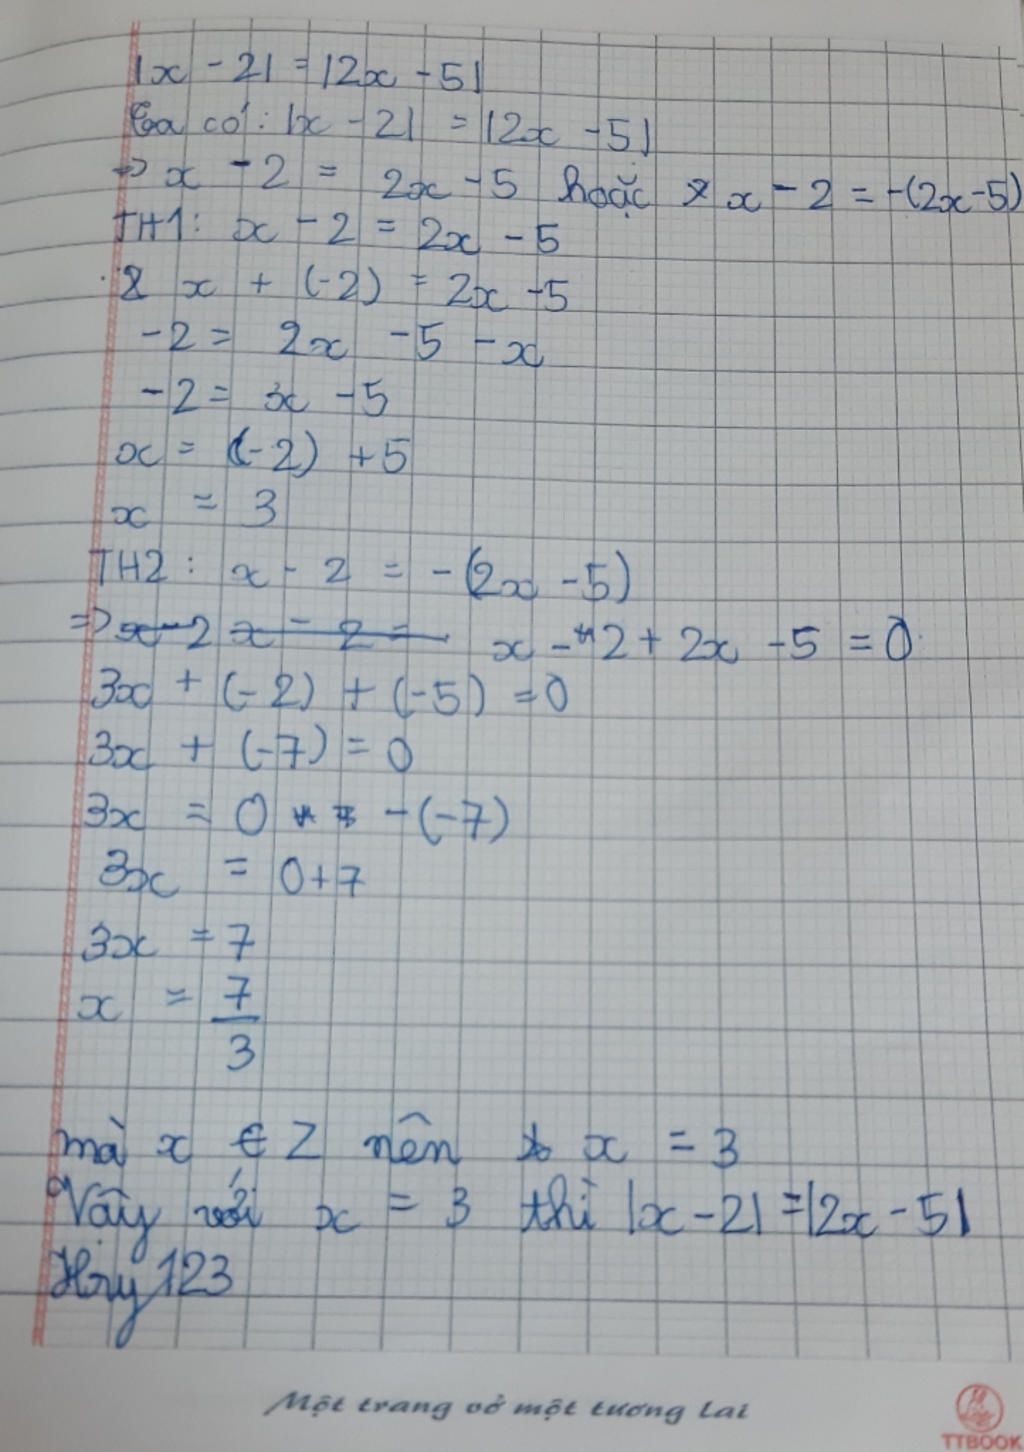 |x - 2| = |2x - 5|
Ta có: |x - 2| = |2x - 5|
=> x - 2 = 2x - 5 hoặc x - 2 = -(2x-5)
TH1: x - 2 = 2x - 5
x + (-2) = 2x - 5
-2 = 2x - 5 - x
-2 = x - 5
x = (-2) + 5
x = 3
TH2: x - 2 = -(2x - 5)
=> x - 2 x - 2 = x - 2 + 2x - 5 = 0
3x + (-2) + (-5) = 0
3x + (-7) = 0
3x = 0 - (-7)
3x = 0+7
3x = 7
x = 7
3
mà x ∈ Z nên x = 3
Vậy với x = 3 thì |x - 2| = |2x - 5|
123
Một trang vở một tương lai
TTBOOK